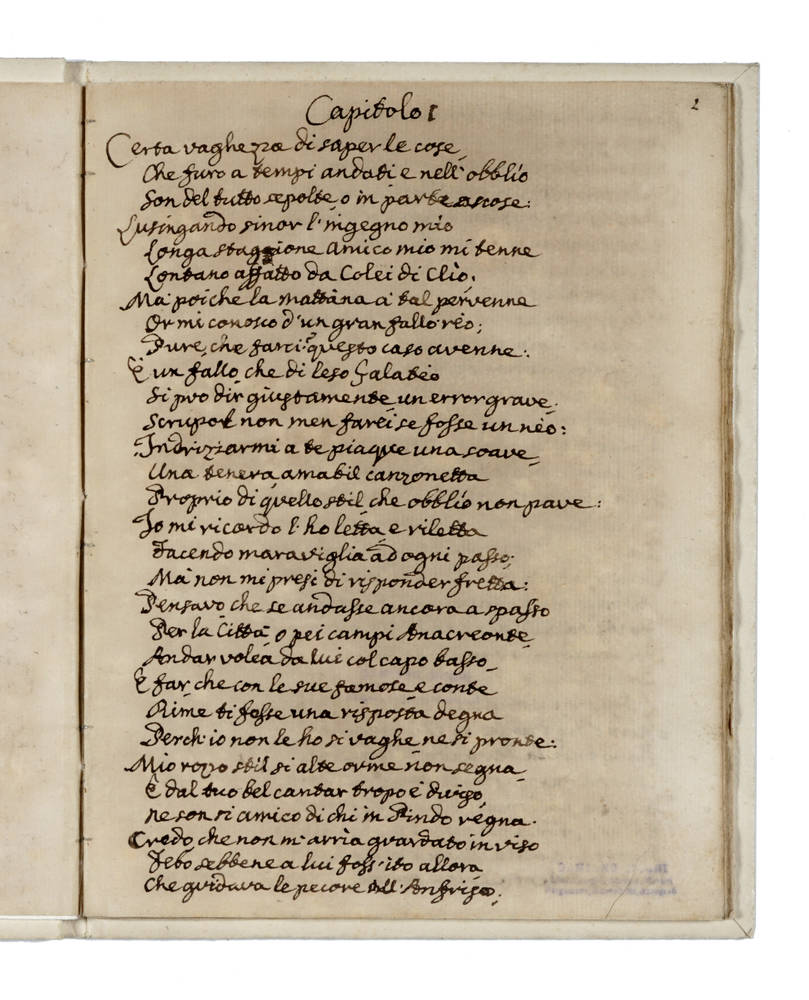 2
Capitolo I
Certa vaghezza di saper le cose
Che furo a tempi andati e nell'obblio
Son del tutto sepolte o in parte ascose:
Lusingando sinor l'ingegno mio
Longa staggione Amico mio mi tenne
Lontano affatto da Colei di Cliò.
Ma poiche la mattina a tal pervenne
Or mi conosco d'un gran fallo reo;
Pure, che farci? questo caso avenne:
È un fallo, che di leso Galateo
Si può dir giustamente un error grave,
Scrupol non men farei se fosse un nèo:
Indrizzarmi a te piaque una soave,
Una tenera amabil canzonetta
Proprio di quello stil che obblio non pave:
Io mi ricordo l'ho letta, e riletta
Facendo maraviglia ad ogni passo;
Ma non mi presi di risponder fretta:
Pensavo che se andasse ancora a spasso
Per la Città o pei campi Anacreonte
Andar volea da lui col capo basso
E far, che con le sue famose e conte
Rime ti fosse una risposta degna
Perch'io non le ho si vaghe ne si pronte:
Mio rozo stil si alte orme non segna
E dal tuo bel cantar tropo è diviso,
ne son si amico di chi in Pindo regna.
Credo, che non m'arria guardato in viso
Febo sebbene a lui foss'ito allora
Che guidava le pecore all'Anfriso;